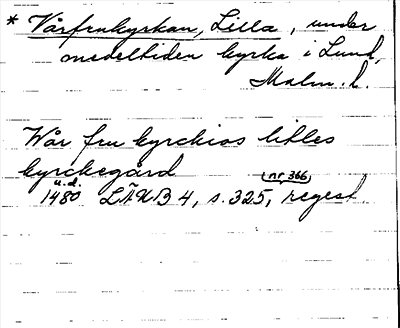 * Vårfrukyrkan, Lilla, under
medeltiden kyrka i Lund,
Malm. l.
Wår fru kyrckios litles
kyrckegård
u.d. nr 366
1480 LÄUB 4, s. 325, regest